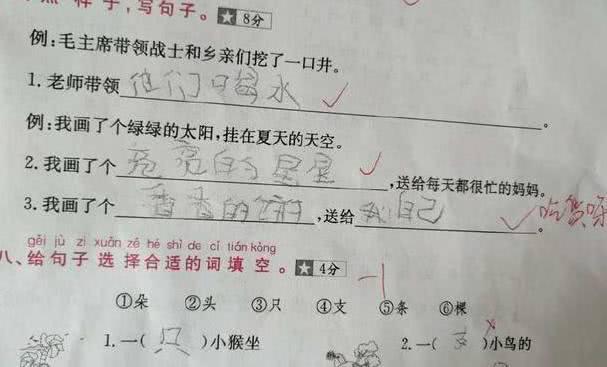 样子，写句子。★ 8分
例：毛主席带领战士和乡亲们挖了一口井。
1. 老师带领他们喝水。
例：我画了个绿绿的太阳，挂在夏天的天空。
2. 我画了个亮亮的星星，送给每天都很忙的妈妈。
3. 我画了个香香的饼，送给我自己。吃货呀
gěi jù zi xuǎn zé hé shì de cí tián kòng
八、给句子选择合适的词填空。★ 4分 -1
①朵 ②头 ③只 ④支 ⑤条 ⑥棵
1. 一(只)小猴坐 2. 一(支)小鸟的